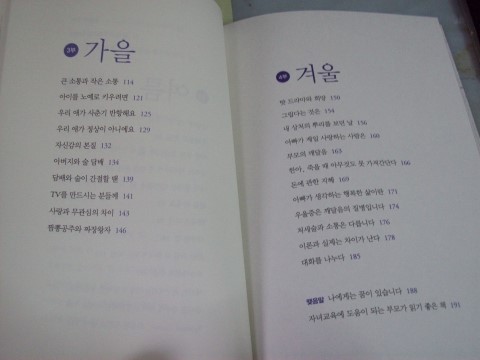 3부 가을
큰 소통과 작은 소통 114
아이를 노예로 키우려면 121
우리 애가 사춘기 반항해요 125
우리 애가 정상이 아니에요 129
자신감의 본질 132
아버지와 술 담배 134
담배와 술이 간절할 땐 139
TV를 만드시는 분들께 141
사랑과 무관심의 차이 143
짬뽕공주와 짜장왕자 146
4부 겨울
막 드라마와 희망 150
그렇다는 것은 154
내 상처의 뿌리를 보던 날
아빠가 제일 사랑하는 사람은
부모의 깨달음 163
한아, 죽을 때 아무것도 못 가져간단다 166
돈에 관한 지혜 169
아빠가 생각하는 행복한 삶이란 171
우울증은 깨달음의 질병입니다 174
처세술과 소통은 다릅니다 176
이론과 실제는 차이가 난다 178
대화를 나누다 185
맺음말 나에게는 꿈이 있습니다 188
자녀교육에 도움이 되는 부모가 읽기 좋은 책 191